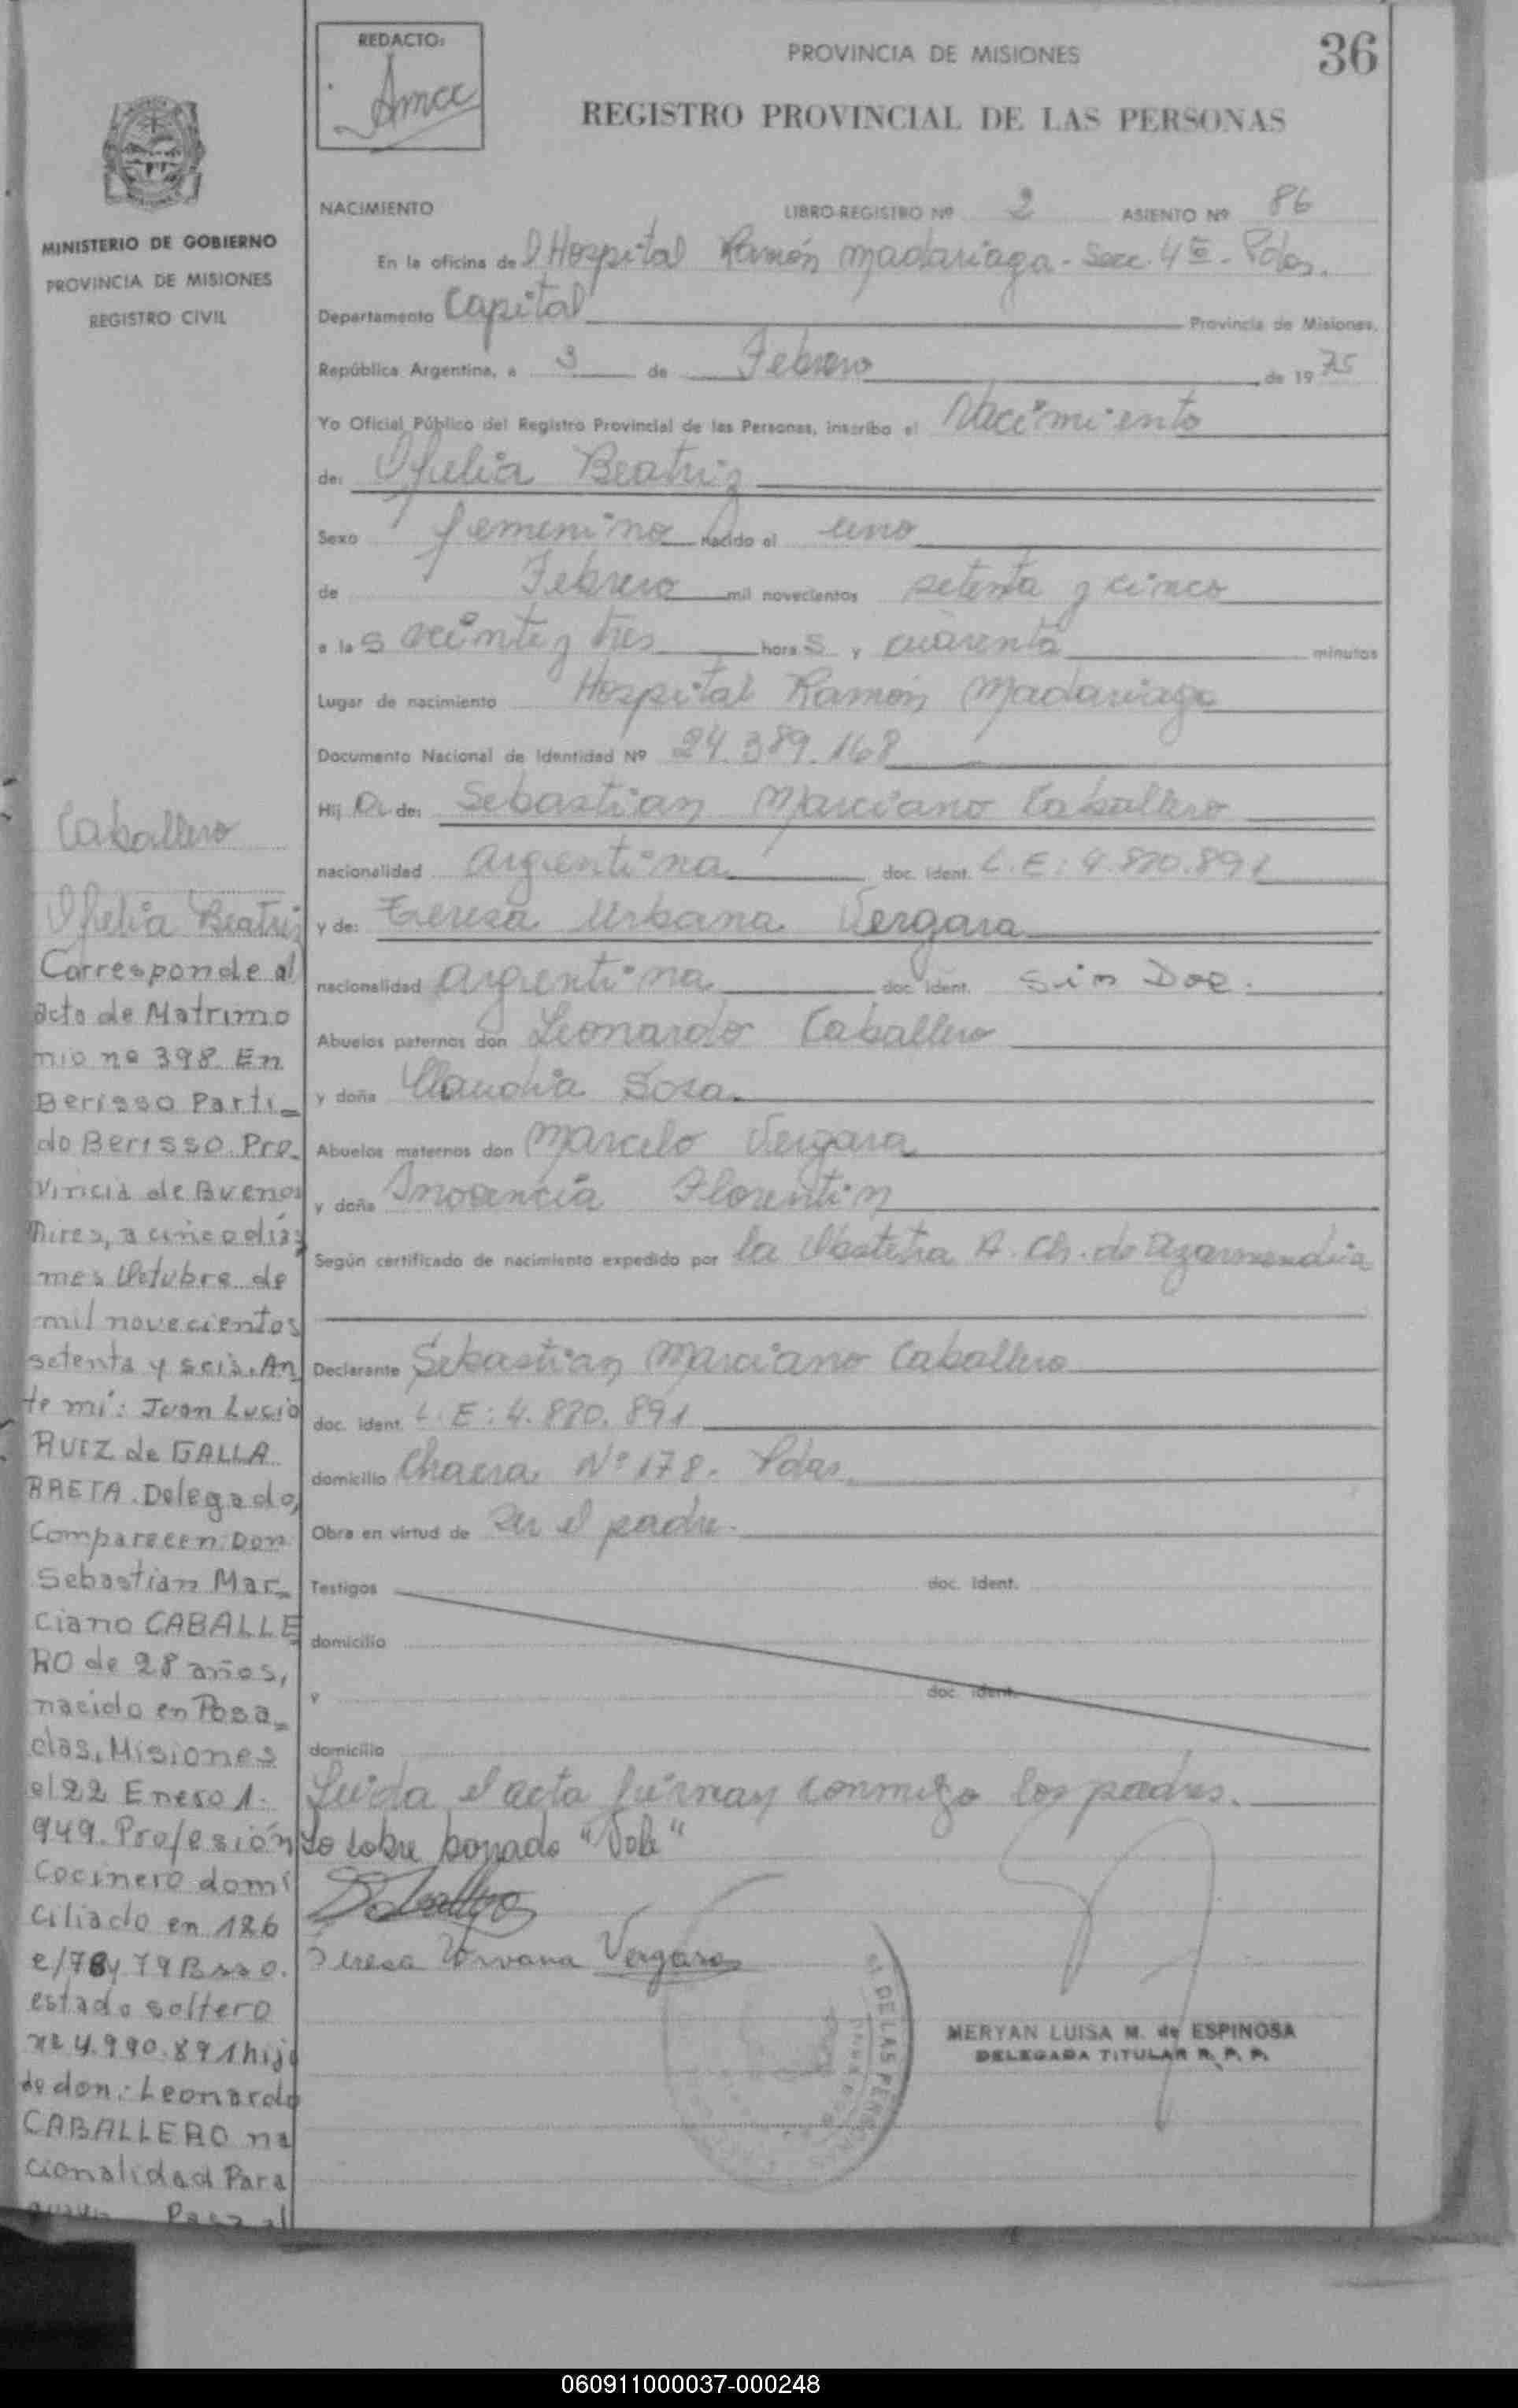 REDACTO:
PROVINCIA DE MISIONES
36
REGISTRO PROVINCIAL DE LAS PERSONAS
MINISTERIO DE GOBIERNO
PROVINCIA DE MISIONES
REGISTRO CIVIL
NACIMIENTO LIBRO-REGISTRO Nº 2 ASIENTO Nº 86
En la oficina del Hospital Ramón Madariaga - Secc. 4ta - Pdas.
Departamento Capital Provincia de Misiones,
República Argentina, a 3 de Febrero de 1975
Yo Oficial Público del Registro Provincial de las Personas, inscribo el Nacimiento
de: Ofelia Beatriz
Sexo femenino nacido el uno
de Febrero mil novecientos setenta y cinco
a las veinte y tres horas y cuarenta minutos
Lugar de nacimiento Hospital Ramón Madariaga
Documento Nacional de Identidad Nº 24.389.168
Hija de: Sebastian Marciano Caballero
nacionalidad argentina doc. ident. L.E: 4.990.891
y de: Teresa Urbana Vergara
nacionalidad argentina doc. ident. Sin Doc.
Abuelos paternos don Leonardo Caballero
y doña Claudia Sosa
Abuelos maternos don Marcelo Vergara
y doña Inocencia Florentin
Según certificado de nacimiento expedido por la A. Ch. de Azarmendia
Declarante Sebastian Marciano Caballero
doc. ident. L.E: 4.990.891
domicilio Chacra Nº 178. Pdas.
Obra en virtud de ser el padre.
Testigos doc. ident.
domicilio
y doc. ident.
domicilio
Leida el acta firman conmigo los padres.
Lo sobre borrado "Vale"
Teresa Urvana Vergara
MERYAN LUISA M. de ESPINOSA
DELEGADA TITULAR R. P. P.
DE LAS PERS
Caballero
Ofelia Beatriz
Corresponde al
acto de Matrimo
nio nº 398 En
Berisso Parti_
do Berisso Pro_
vincia de Buenos
Aires, a cinco dias
mes Octubre de
mil novecientos
setenta y seis. An
te mi: Juan Lucio
RUIZ de GALLA
RRETA. Delegado,
Comparecen: Don
Sebastian Mar_
ciano CABALLE
RO de 28 años,
nacido en Posa_
das, Misiones
el 22 Enero 1.
949. Profesión
Cocinero domi
ciliado en 126
e/78 y 79 Bsso.
estado soltero
nº 4.990.891 hijo
de don: Leonardo
CABALLERO na
cionalidad Para
guayo Pasa al
060911000037-000248